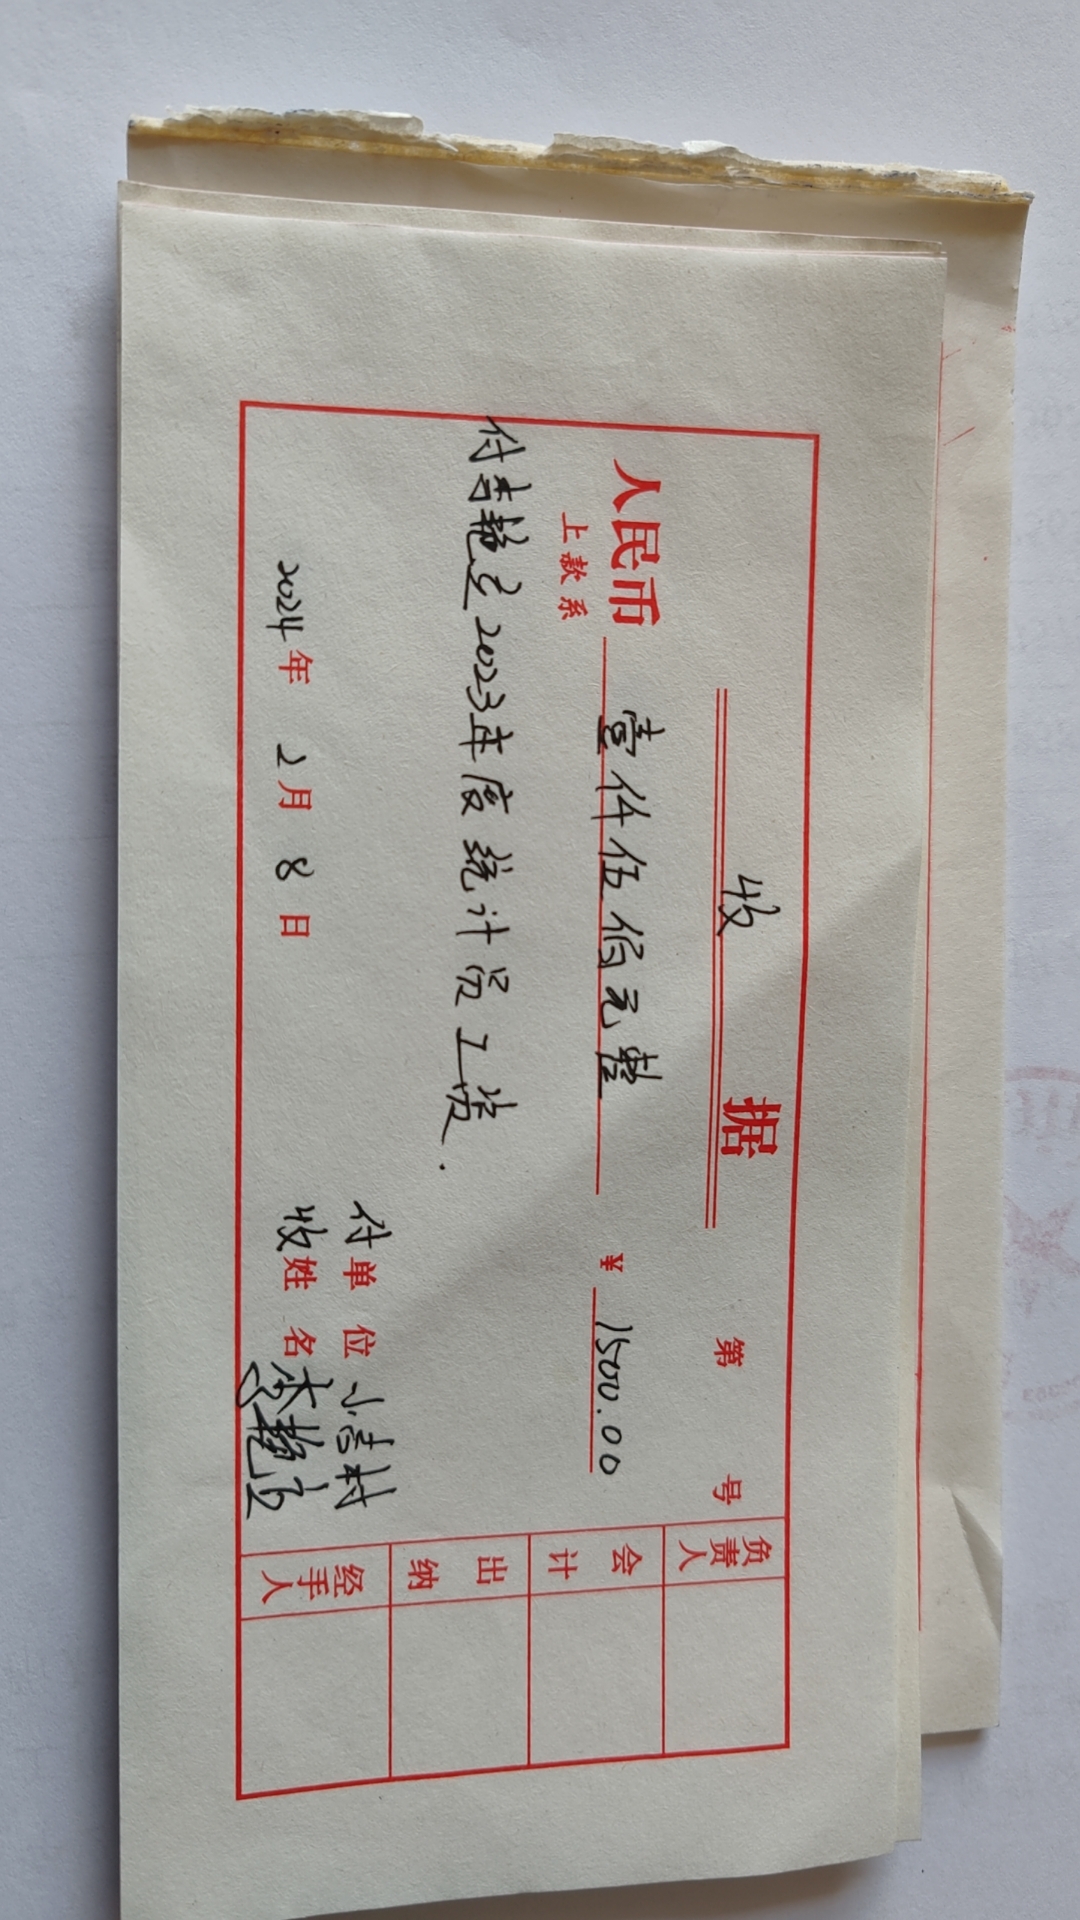 收 据
第 号
人民币 壹仟伍佰元整 ¥ 1500.00
上款系
付李艳 2023年度统计员工资.
付单位 小 村
收姓名 李艳
2024年 2月 8日
负责人
会计
出纳
经手人